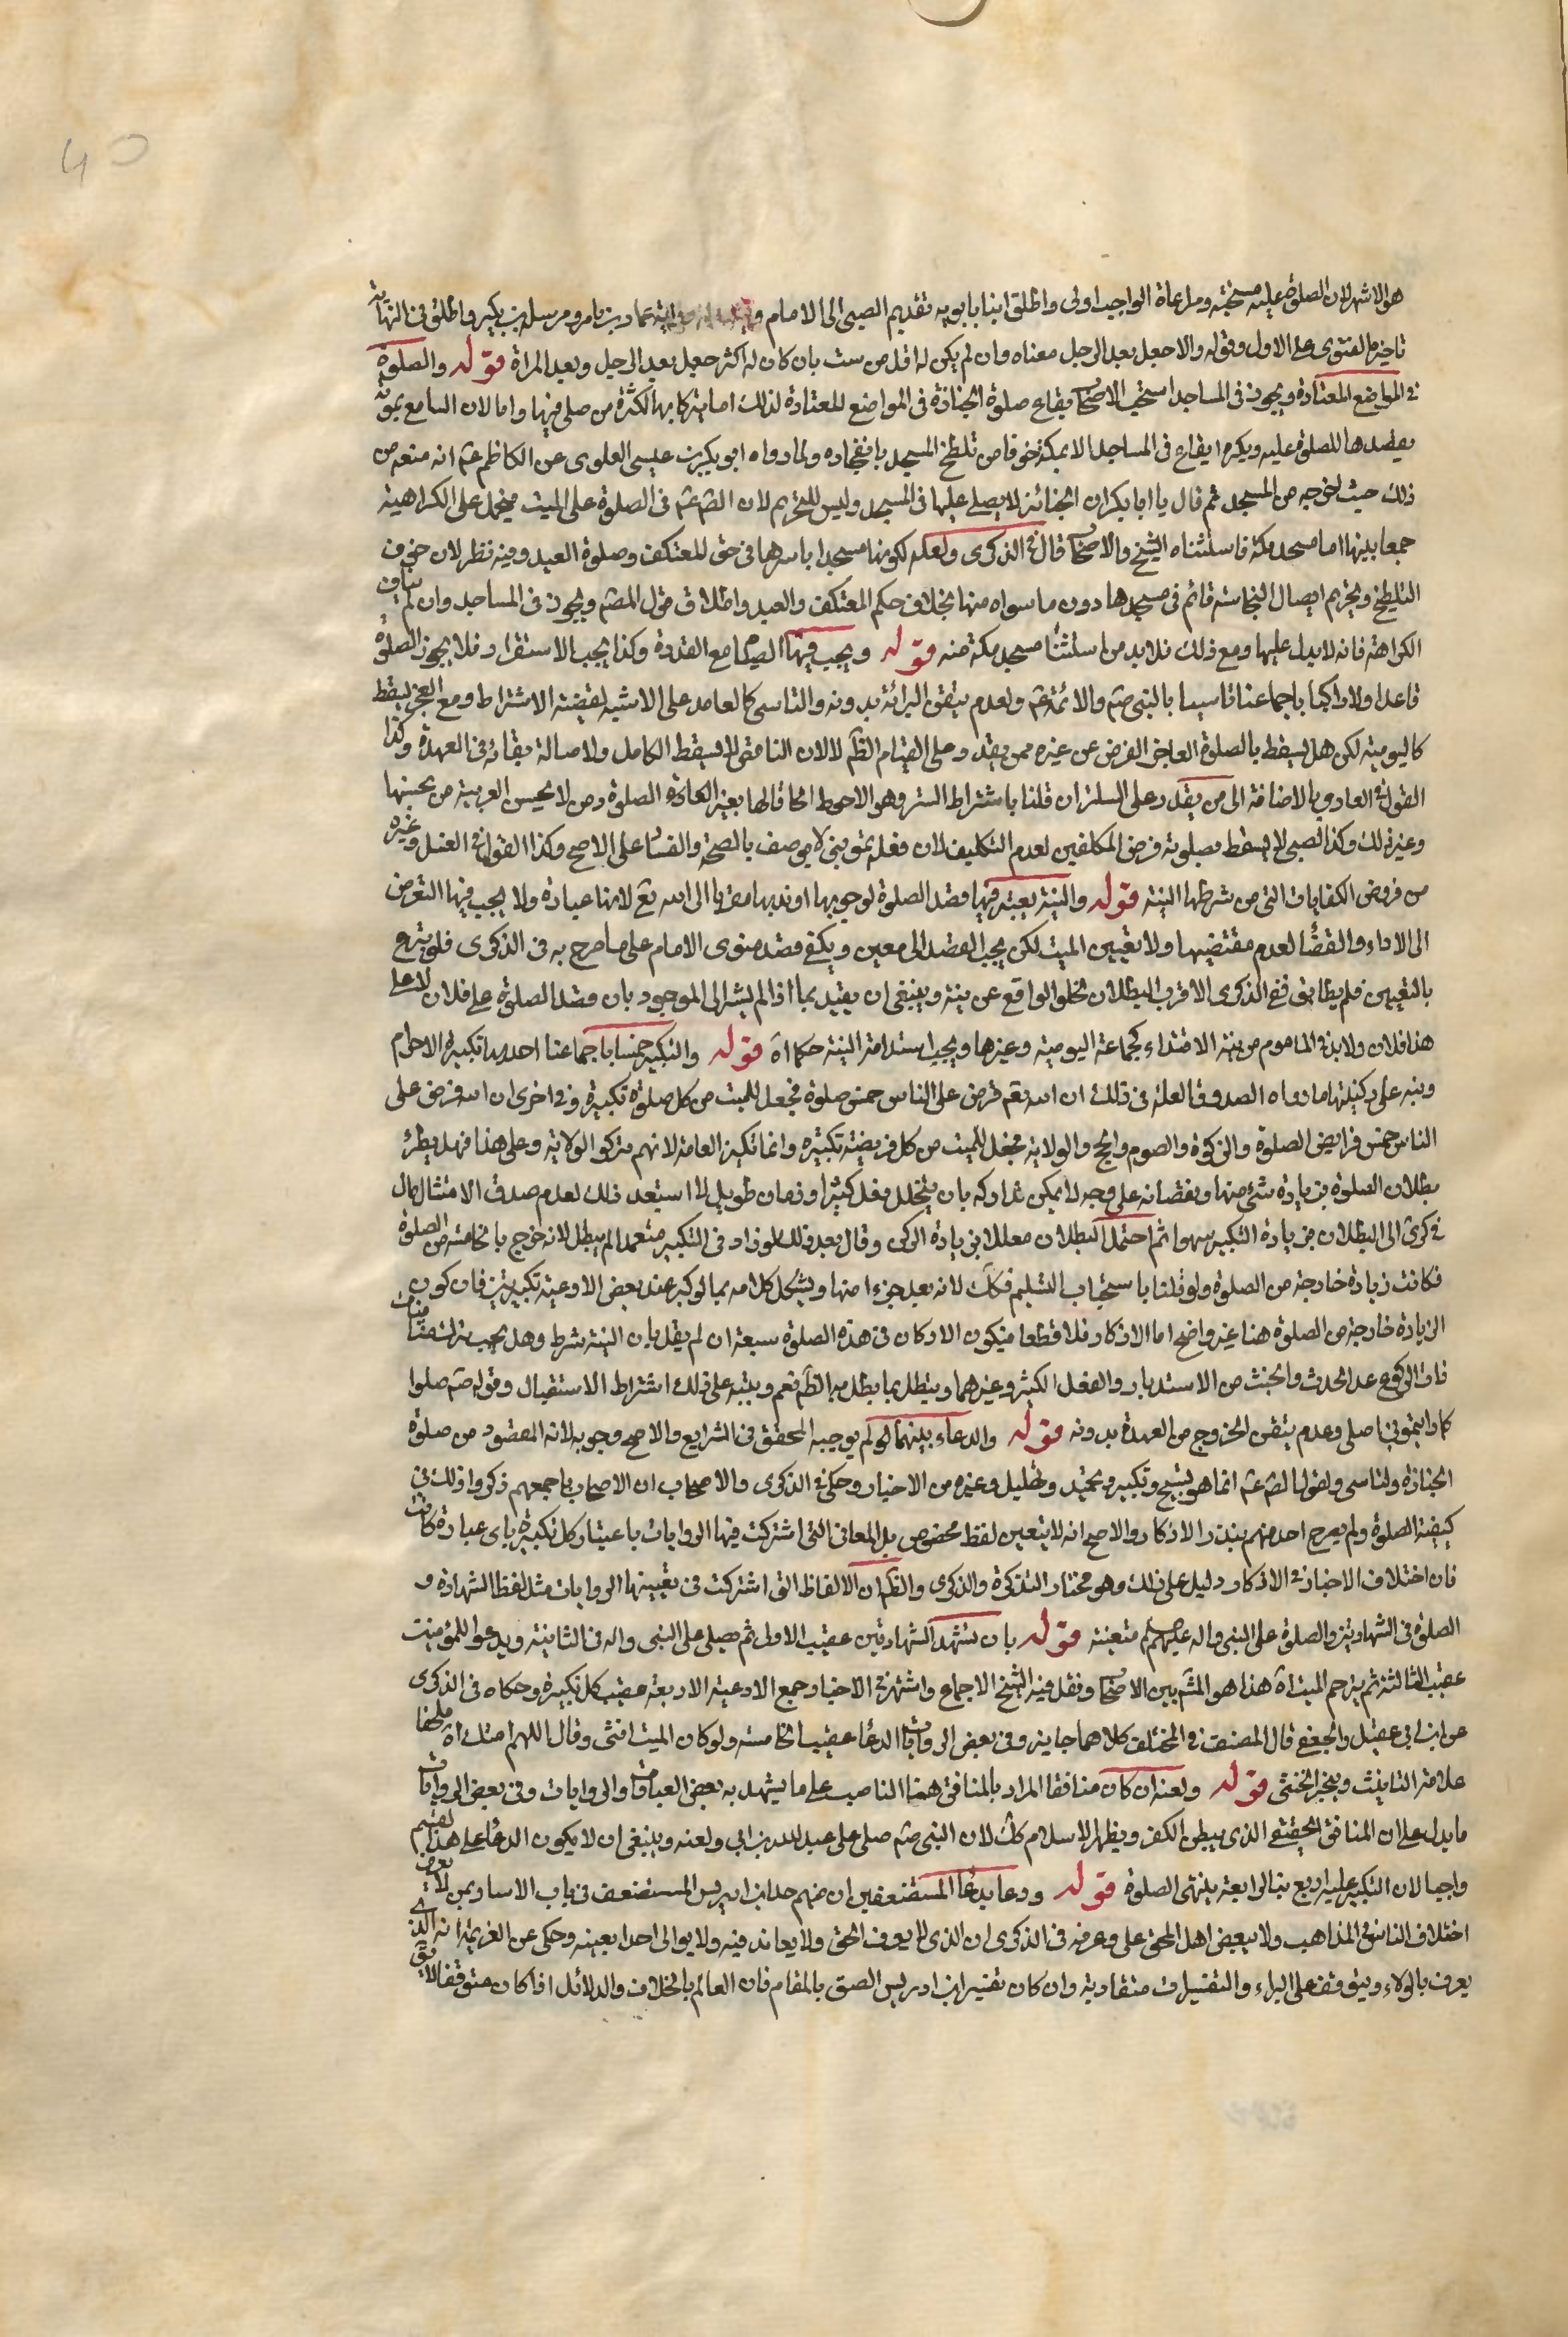 هو الاشهر لان الصلوة عليه مستحبة ومراعاة الواجب اولى واطلق ابنا بابويه تقديم الصبى الى الامام عمار بن يامر ومرسلة بن بكير واطلق فى النهاية
تاخيره والفتوى على الاول وقوله والا جعل بعد الرجل معناه وان لم يكن له اقل من ست بان كان له اكثر جعل بعد الرجل وبعد المراة قوله والصلوة
فى المواضع المعتادة ويجوز فى المساجد استحب الاصحاب ايقاع صلوة الجنازة فى المواضع المعتادة لذلك اما تبركا بها لكثرة من صلى فيها واما لان السامع بموته
يقصدها للصلوة عليه ويكره ايقاع فى المساجد الا بمكة خوفا من تلطخ المسجد بانفجاره ولما رواه ابو بكر بن عيسى العلوى عن الكاظم ع انه منعه من
ذلك حيث اخرجه من المسجد ثم قال يا ابا بكر ان الجنائز لا يصلى عليها فى المسجد وليس للتحريم لان الص ع فى الصلوة على الميت فيحمل على الكراهية
جمعا بينهما اما مسجد مكة فاستثناه الشيخ والاصحاب قال فى الذكرى ولعله لكونها مسجدا باسرها فى حق المعتكف وصلوة العيد وفيه نظر لان خوف
التلطيخ وتحريم ايصال النجاسة قائم فى مسجدها دون ما سواه منها بخلاف حكم المعتكف والعيد واطلاق قول المص ويجوز فى المساجد وان لم يناف
الكراهة فانه لا يدل عليها ومع ذلك فلا بد من استثنا مسجد مكة منه قوله ويجب فيها القيام مع القدرة وكذا يجب الاستقرار فلا يجوز الصلوة
قاعدا ولا راكبا باجماعنا تاسيا بالنبى ص والائمة ع ولعدم تيقن البرائة بدونه والناسى كالعامد على الاشبه لقضية الاشتراط ومع العجز يسقط
كاليومية لكن هل يسقط بالصلوة العاجز الفرض عن غيره ممن يقدر على القيام الظ لا لان الناقص لا يسقط الكامل ولاصالة بقائه فى العهدة وكذا
القول فى العارى بالاضافة الى من يقدر على الستر ان قلنا باشتراط الستر وهو الاحوط الحاقا لها بغير العادة الصلوة ومن لا يحسن العربية من يحسنها
وغير ذلك وكذا الصبى لا يسقط بصلوته فرض المكلفين لعدم التكليف لان فعله تمرينى لا يوصف بالصحة والفساد على الاصح وكذا القول فى الغسل وغيره
من فروض الكفايات التى من شرطها النية قوله والنية يعتبر فيها قصد الصلوة لوجوبها او ندبها متقربا الى الله تع لانها عبادة ولا يجب فيها التعرض
الى الاداء والقضا لعدم مقتضيها ولا تعيين الميت لكن يجب القصد الى معين ويكفى قصد منوى الامام على ما صرح به فى الذكرى فلو تبرع
بالتعيين فلم يطابق ففى الذكرى الاقرب البطلان لخلو الواقع عن نية وينبغى ان يقيد بما اذا لم يشر الى الموجود بان قصد الصلوة على فلان لا على
هذا فلان ولا بد فى الماموم من نية الاقتداء كجماعة اليومية وغيرها ويجب استدامة النية حكما اه قوله والتكبير خمسا باجماعنا احديها تكبيرة الاحرام
ونبه على ركنيتها ما رواه الصدوق العلة فى ذلك ان الله تع فرض على الناس خمس صلوة فجعل للميت من كل صلوة تكبيرة وفى اخرى ان الله فرض على
الناس خمس فرايض الصلوة والزكوة والصوم والحج والولاية فجعل للميت من كل فريضة تكبيرة وانما تكبر العامة لانهم تركوا الولاية وعلى هذا فهل يطرئ
بطلان الصلوة بزيادة شئ منها ونقصانه على وجه لا يمكن تداركه بان يتخلل فعل كثير او زمان طويل لا استبعد ذلك لعدم صدق الامتثال مال
فى كرى الى البطلان بزيادة التكبير سهوا ثم احتمل البطلان معللا بزيادة الركن وقال بعد ذلك لو زاد فى التكبير متعمدا لم يبطل لانه خرج بالخامسة من الصلوة
فكانت زيادة خارجة من الصلوة ولو قلنا باستحباب التسليم فكك لانه يعد جزءا منها ويشكل كلامه بما لو كبر عند بعض الادعية تكبيرتين فان كون
الزيادة خارجة من الصلوة هنا غير واضح اما الاذكار فلا قطعا فيكون الاركان فى هذه الصلوة سبعة ان لم يقل بان النية شرط وهل يجب
فات الركوع عدا الحدث والخبث من الاستدبار والفعل الكثير وغيرهما ويبطل بما يبطل به الظ نعم وينبه على ذلك اشتراط الاستقبال وقوله ص صلوا
كما رايتمونى اصلى وعدم تيقن الخروج من العهدة بدونه قوله والدعاء بينهما لم يوجبه المحقق فى الشرايع والاصح وجوبه لانه المقصود من صلوة
الجنازة ولتاسى ولقول الص ع انما هو تسبيح وتكبير وتحميد وتهليل وغيره من الاخبار وحكى فى الذكرى والاصحاب ان الاصحاب باجمعهم ذكروا ذلك فى
كيفية الصلوة ولم يصرح احد منهم بندب الاذكار والاصح انه لا يتعين لفظ مخصوص بل المعانى التى اشتركت فيها الروايات باعتبار كل تكبيرة باى عبارة كانت
فان اختلاف الاخبار فى الاذكار دليل على ذلك وهو مختار التذكرة والذكرى والظ ان الالفاظ التى اشتركت فى تعيينها الروايات مثل لفظ الشهادة و
الصلوة فى الشهادتين والصلوة على النبى واله عليهم متعينة قوله بان يتشهد الشهادتين عقيب الاولى ثم يصلى على النبى واله فى الثانية ويدعو للمؤمنين
عقيب الثالثة ثم يترحم الميت اه هذا هو المش بين الاصحاب ونقل فيه الشيخ الاجماع واشتهر فى الاخبار جمع الادعية الاربعة عقيب كل تكبيرة وحكاه فى الذكرى
عن ابن ابى عقيل والجعفى قال المصنف فى المختلف كلاهما جايز وفى بعض الروايات الدعا عقيب الخامسة ولو كان الميت انثى وقال اللهم امتك اه ملحقا
علامة التانيث ويخير الخنثى قوله ولعنه ان كان منافقا المراد بالمنافق هنا الناصب على ما يشهد به بعض العبارات والروايات وفى بعض الروايات
ما يدل على ان المنافق الحقيقى الذى يبطن الكفر ويظهر الاسلام كك لان النبى ص صلى على عبد الله بن ابى ولعنه وينبغى ان لا يكون الدعا على هذا القسم
واجبا لان التكبير عليه اربع فبالرابعة ينتهى الصلوة قوله ودعا بدعا المستضعفين ان منهم حد ابن ادريس المستضعف فى باب الاسار بمن لا يعرف
اختلاف الناس فى المذاهب ولا يبغض اهل الحق على وعرفه فى الذكرى ان الذى لا يعرف الحق ولا يعاند فيه ولا يوالى احدا بعينه وحكى عن الغرية انه الذى
يعرف بالولاء ويتوقف على البراء والتفسيرات متقاربة وان كان تفسير ابن ادريس الصق بالمقام فان العالم بالخلاف والدلائل اذا كان متوقفا لا يق